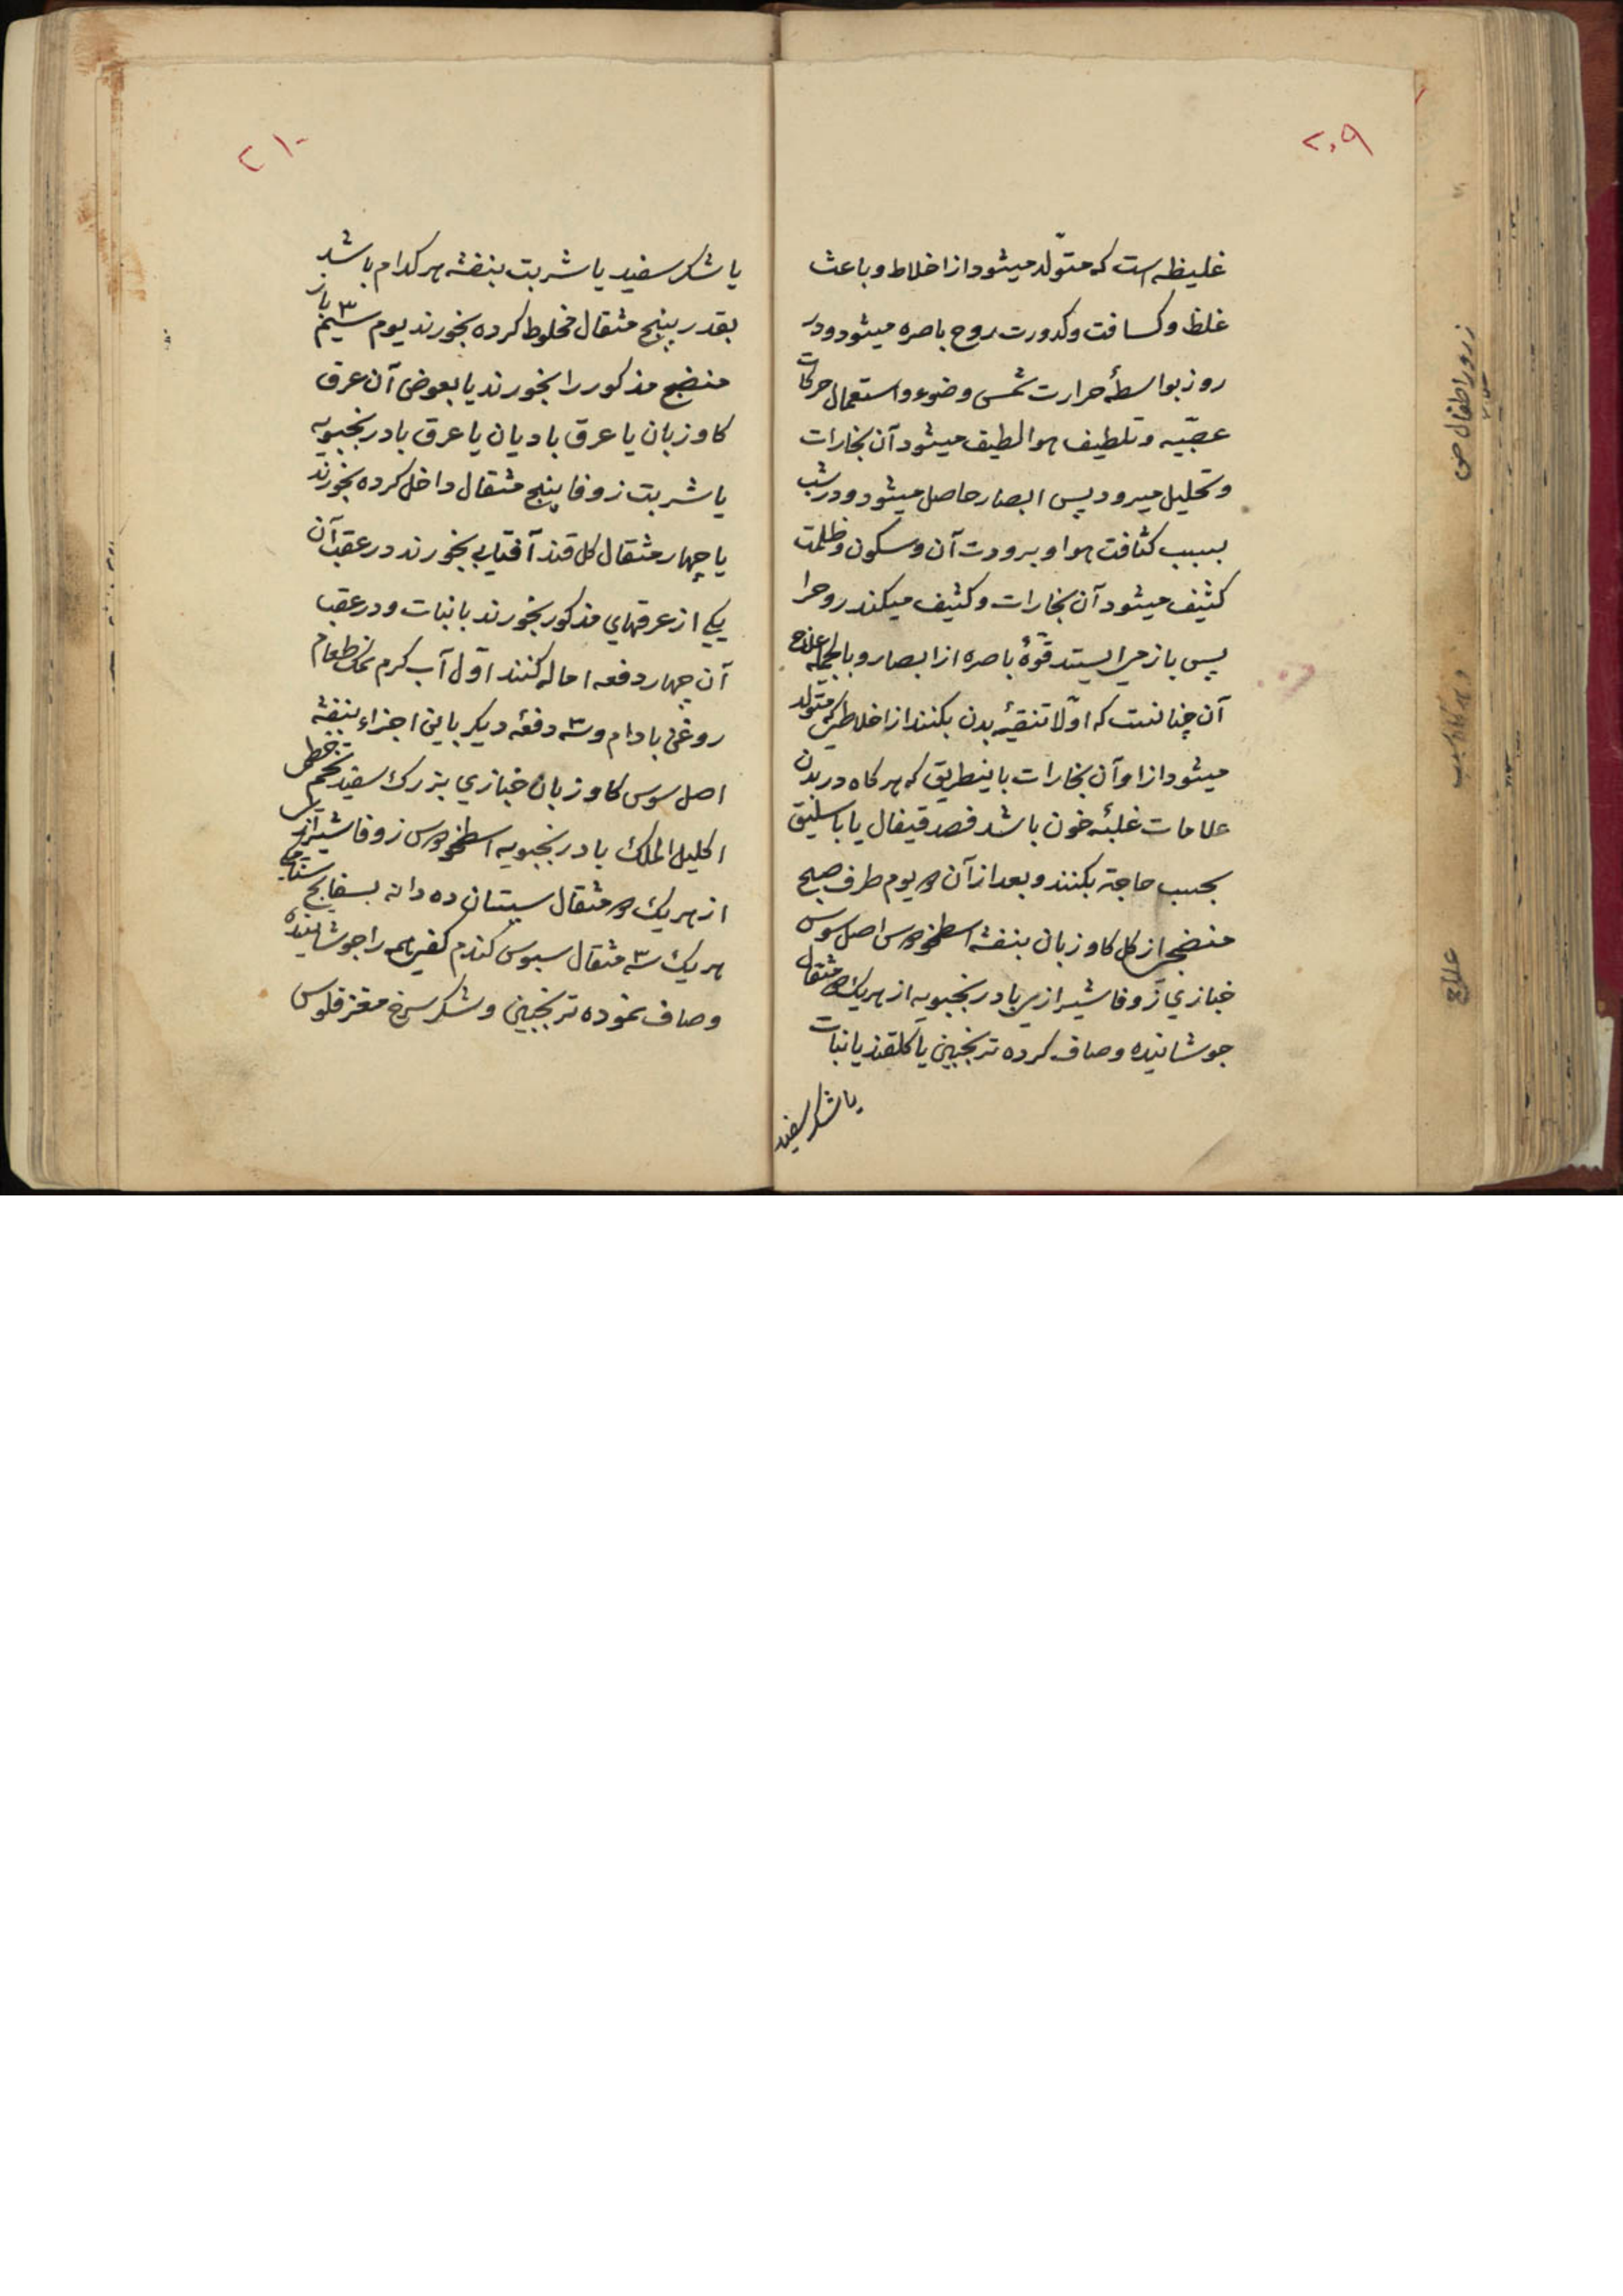 ۲۰۹
غلیظه است که متولّد میشود از اخلاط و باعث
غلظ و کسافت و کدورت روح باصره میشود و در
روز بواسطهٔ حرارت شمس و ضوء و استعمال حرکات
عصبّیه و تلطیف هوا لطیف میشود آن بخارات
و تحلیل میرود پس ابصار حاصل میشود و در شب
بسبب کثافت هوا و برودت آن و سکون و ظلمت
کثیف میشود آن بخارات و کثیف میکند روحرا
پس باز میایستد قوّهٔ باصره از ابصار و بالجمله علاج
آن چنانست که اوّلا تنقیهٔ بدن بکنند از اخلاطی که متولد
میشود از او آن بخارات باینطریق که هر کاه در بدن
علامات غلبهٔ خون باشد فصد قیفال یا باسلیق
بحسب حاجة بکنند و بعد از آن دو یوم طرف صبح
منضجی از کل کاوزبان بنفشه اسطخودوس اصل سوس
خبازی زوفا شیرازی بادرنجبویه از هریک دو مثقال
جوشانیده و صاف کرده ترنجبین یا کلقند یا نبات
یا شکر سفید
۲۱۰
یا شکر سفید یا شربت بنفشه هر کدام باشد
بقدر پنج مثقال مخلوط کرده بخورند یوم سیّم باز
منضج مذکور را بخورند یا بعوض آن عرق
کاوزبان یا عرق بادیان یا عرق بادرنجبویه
یا شربت زوفا پنج مثقال داخل کرده بخورند
یا چهار مثقال کل قند آفتابی بخورند در عقب آن
یکی از عرقهای مذکور بخورند با نبات و در عقب
آن چهار دفعه اماله کنند اوّل آب کرم نمک طعام
روغن بادام و سه دفعهٔ دیکر باین اجزاء بنفشه
اصل سوس کاوزبان خبازی بزرک سفید تخم خطمی
اکلیل الملک بادرنجبویه اسطخودوس زوفا شیرازی
از هریک دو مثقال سپستان ده دانه بسفایج سنامکی
هریک سه مثقال سبوس کندم کفی همه را جوشانیده
و صاف نموده ترنجبین و شکر سرخ مغز فلوس
زرور اطفال
علاج